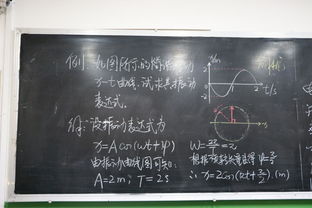 例:如图所示的简谐振动
x-t曲线,试求其振动
表达式.
x/m
2
-2
1
t/s
解:设振动表达式为
x=Acos(ωt+φ)
由振动曲线图可知:
A=2m; T=2s
ω=2π/T=π
根据旋转矢量法得 φ=π/2
∴ x=2cos(πt+π/2)(m)